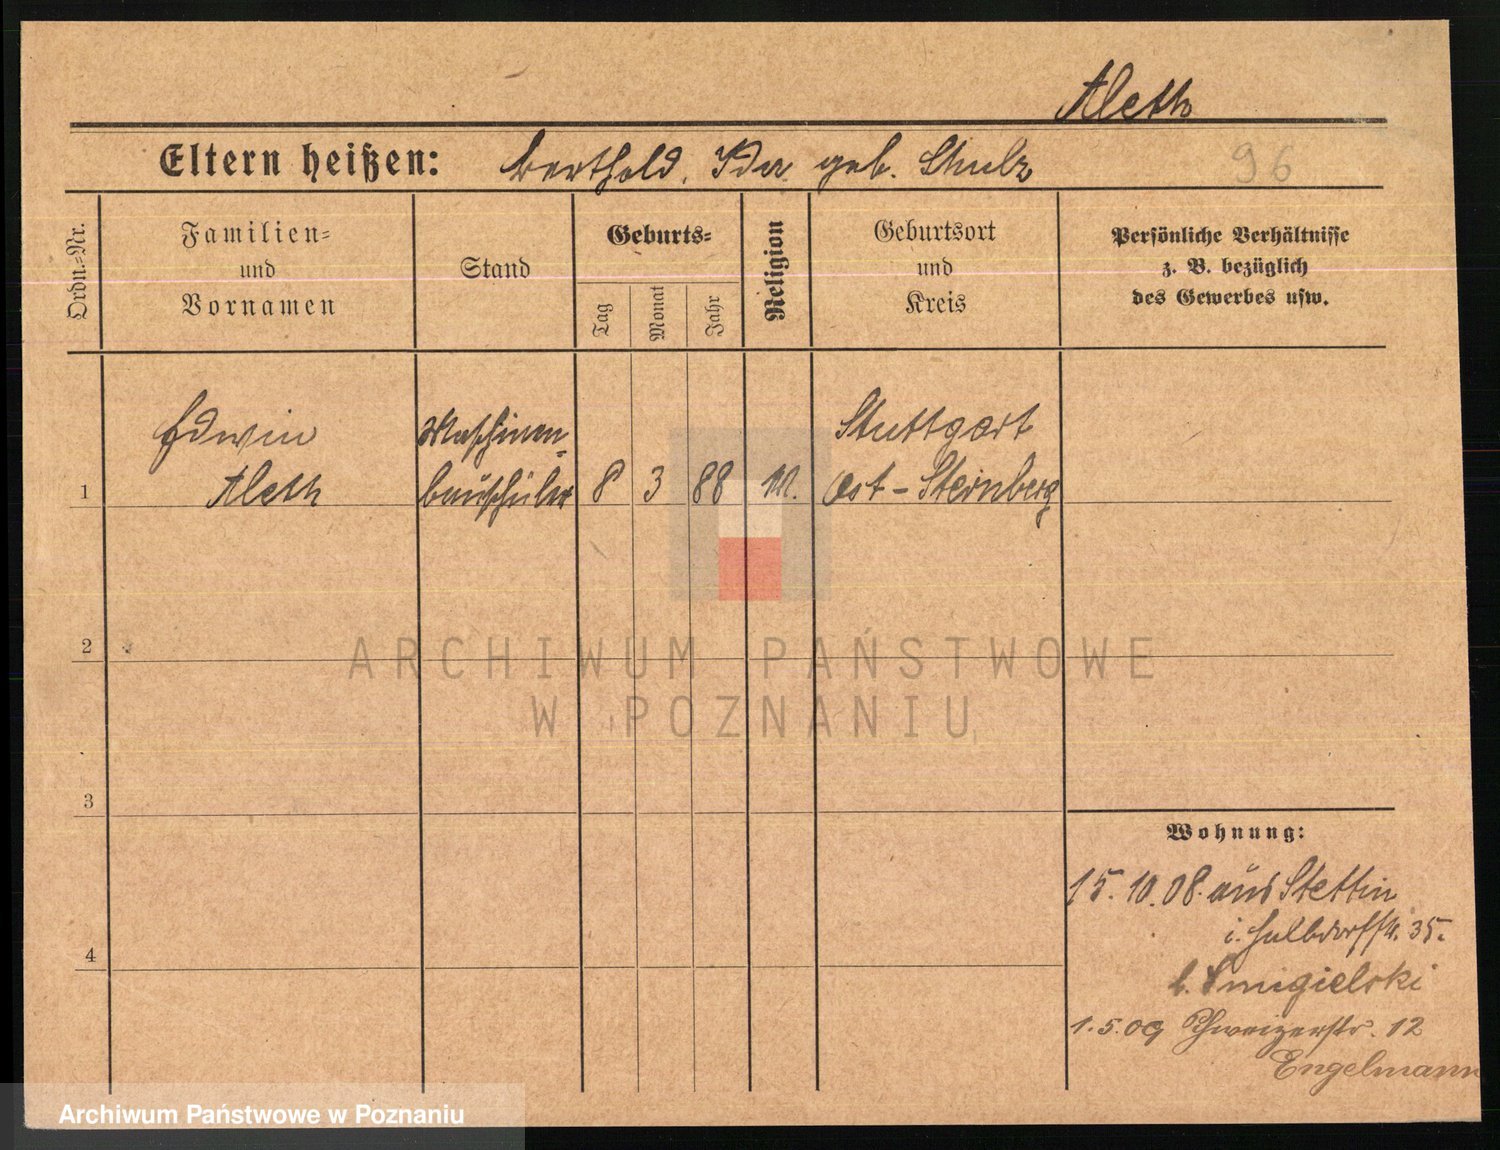 Aleth
Eltern heißen: Berthold, Ida geb. Schulz
96
Ordn.=Nr.
Familien=
und
Vornamen
Stand
Geburts=
Tag
Monat
Jahr
Religion
Geburtsort
und
Kreis
Persönliche Verhältnisse
z. B. bezüglich
des Gewerbes usw.
Edwin Maschinen= Stuttgart
1 Aleth bauschüler 8 3 88 Ost-Sternberg
2
3
4
Wohnung:
15.10.08. aus Stettin
35.
b. Smigielski
1.5.09 Schweizerstr. 12
Engelmann
ARCHIWUM PAŃSTWOWE
W POZNANIU
Archiwum Państwowe w Poznaniu